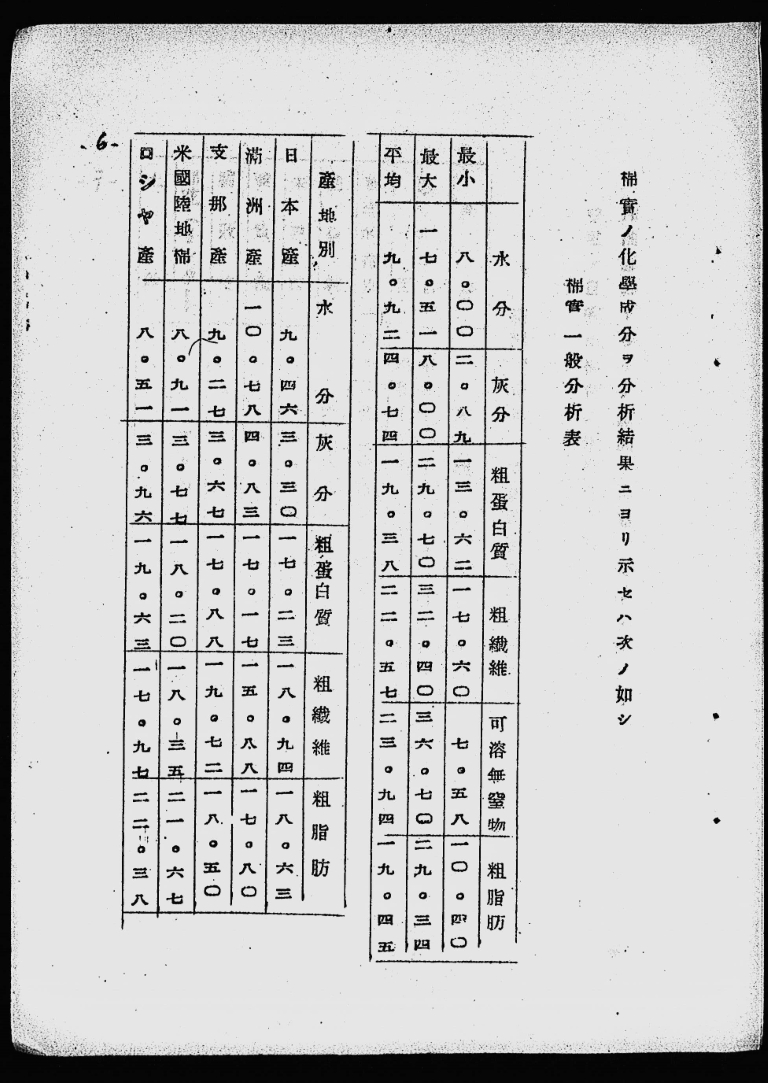 棉實ノ化學成分ヲ分析結果ニヨリ示セハ次ノ如シ
棉實一般分析表
水分 灰分 粗蛋白質 粗纖維 可溶無窒物 粗脂肪
最小 八。〇〇 二。八九 一三。六二 一七。六〇 七。五八 一〇。四〇
最大 一七。五一 八。〇〇 二九。七〇 三二。四〇 三六。七〇 二九。三四
平均 九。九二 四。七四 一九。三八 二二。五七 二三。九四 一九。四五
產地別 水分 灰分 粗蛋白質 粗纖維 粗脂肪
日本產 九。四六 三。三〇 一七。二三 一八。九四 一八。六三
滿洲產 一〇。七八 四。八三 一七。一七 一五。八八 一七。八〇
支那產 九。二七 三。六七 一七。八八 一九。七二 一八。五〇
米國陸地棉 八。九一 三。七七 一八。二〇 一八。三五 二一。六七
ロシヤ產 八。五一 三。九六 一九。六三 一七。九七 二二。三八
-6-